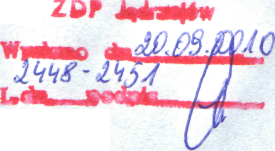 ZDP Jędrzejów
Wysłano dn. 20.09.2010
2448-2451
L.dz. podpis